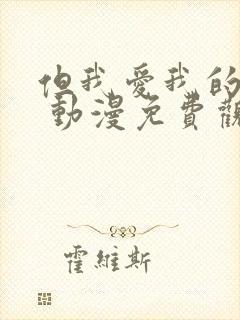 但我愛我的
動漫免費觀
霍維斯